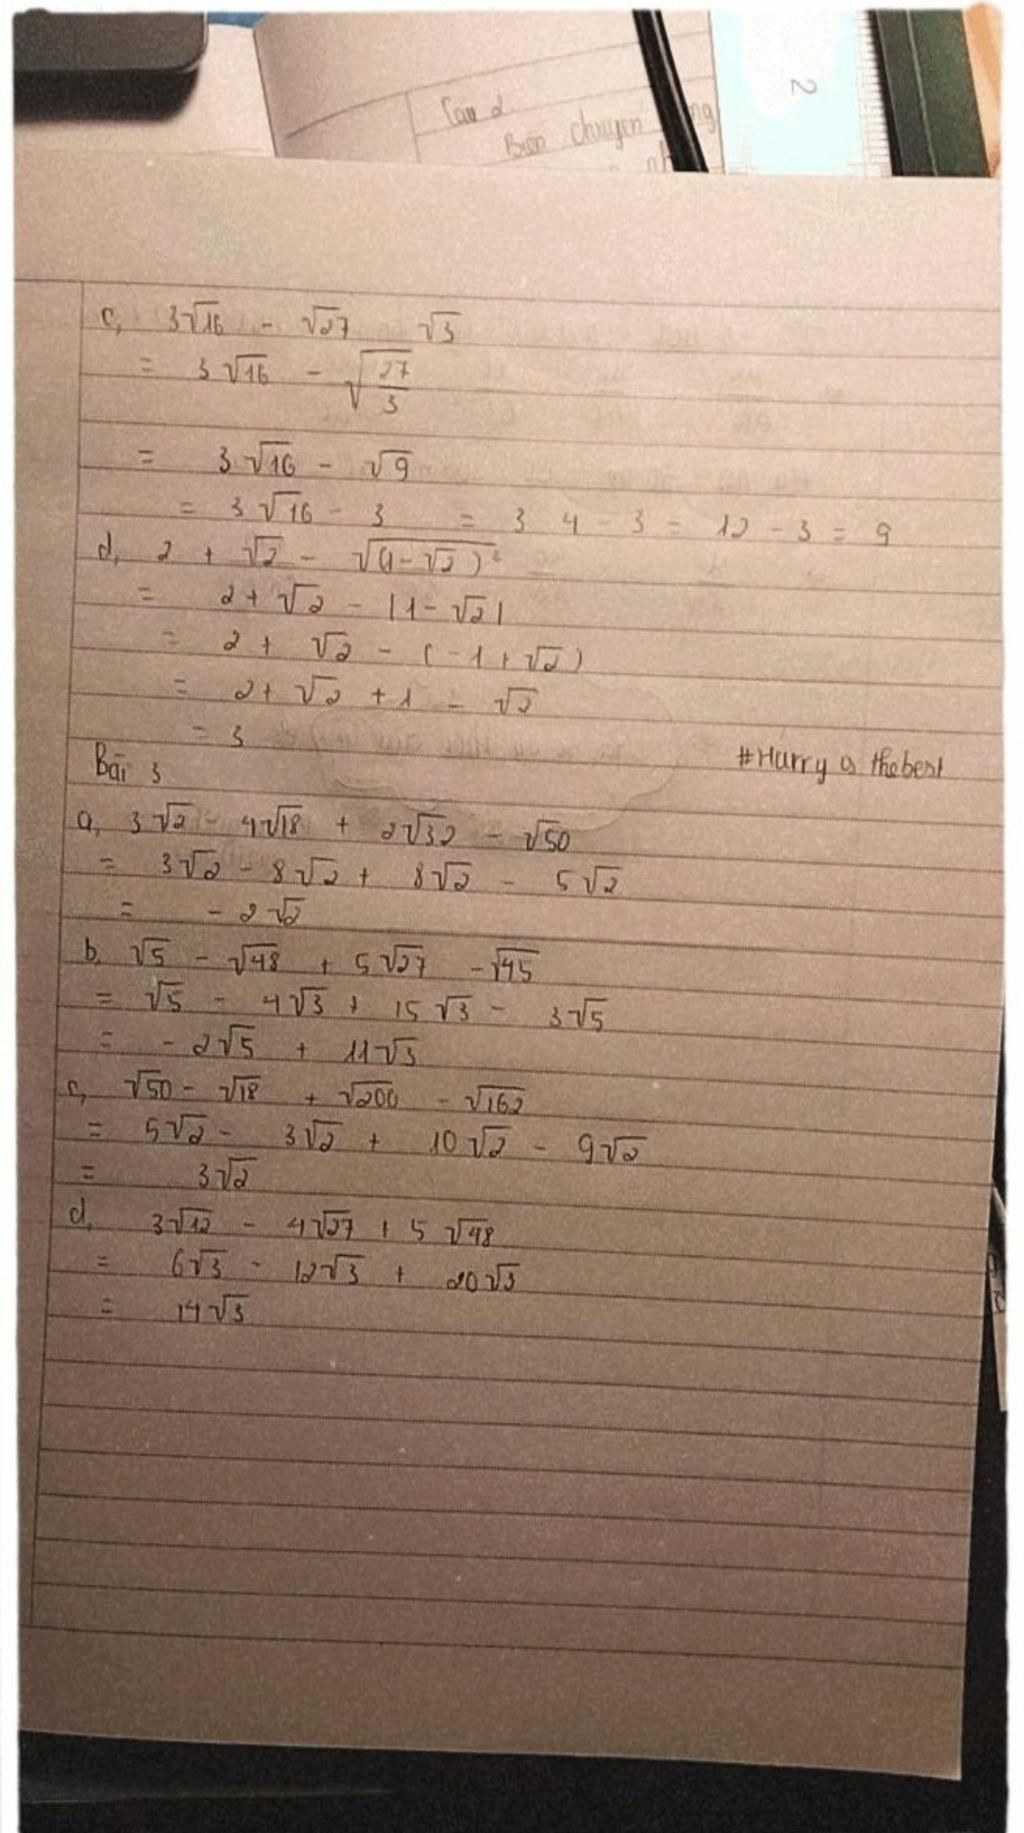 Câu 2
Biến chuyển
2
c, 3√16 - √27 √3
= 3√16 - √(27/3)
= 3√16 - √9
= 3√16 - 3 = 3 4 - 3 = 12 - 3 = 9
d, 2 + √2 - √(1-√2)²
= 2+ √2 - |1-√2|
= 2 + √2 - (-1+√2)
= 2+ √2 + 1 - √2
= 3
#Hurry is the best
Bài 3
a, 3√2 - 4√18 + 2√32 - √50
= 3√2 - 8√2 + 8√2 - 5√2
= - 2√2
b, √5 - √48 + 5√27 - √45
= √5 - 4√3 + 15√3 - 3√5
= - 2√5 + 11√3
c, √50 - √18 + √200 - √162
= 5√2 - 3√2 + 10√2 - 9√2
= 3√2
d, 3√12 - 4√27 + 5√48
= 6√3 - 12√3 + 20√3
= 14√3